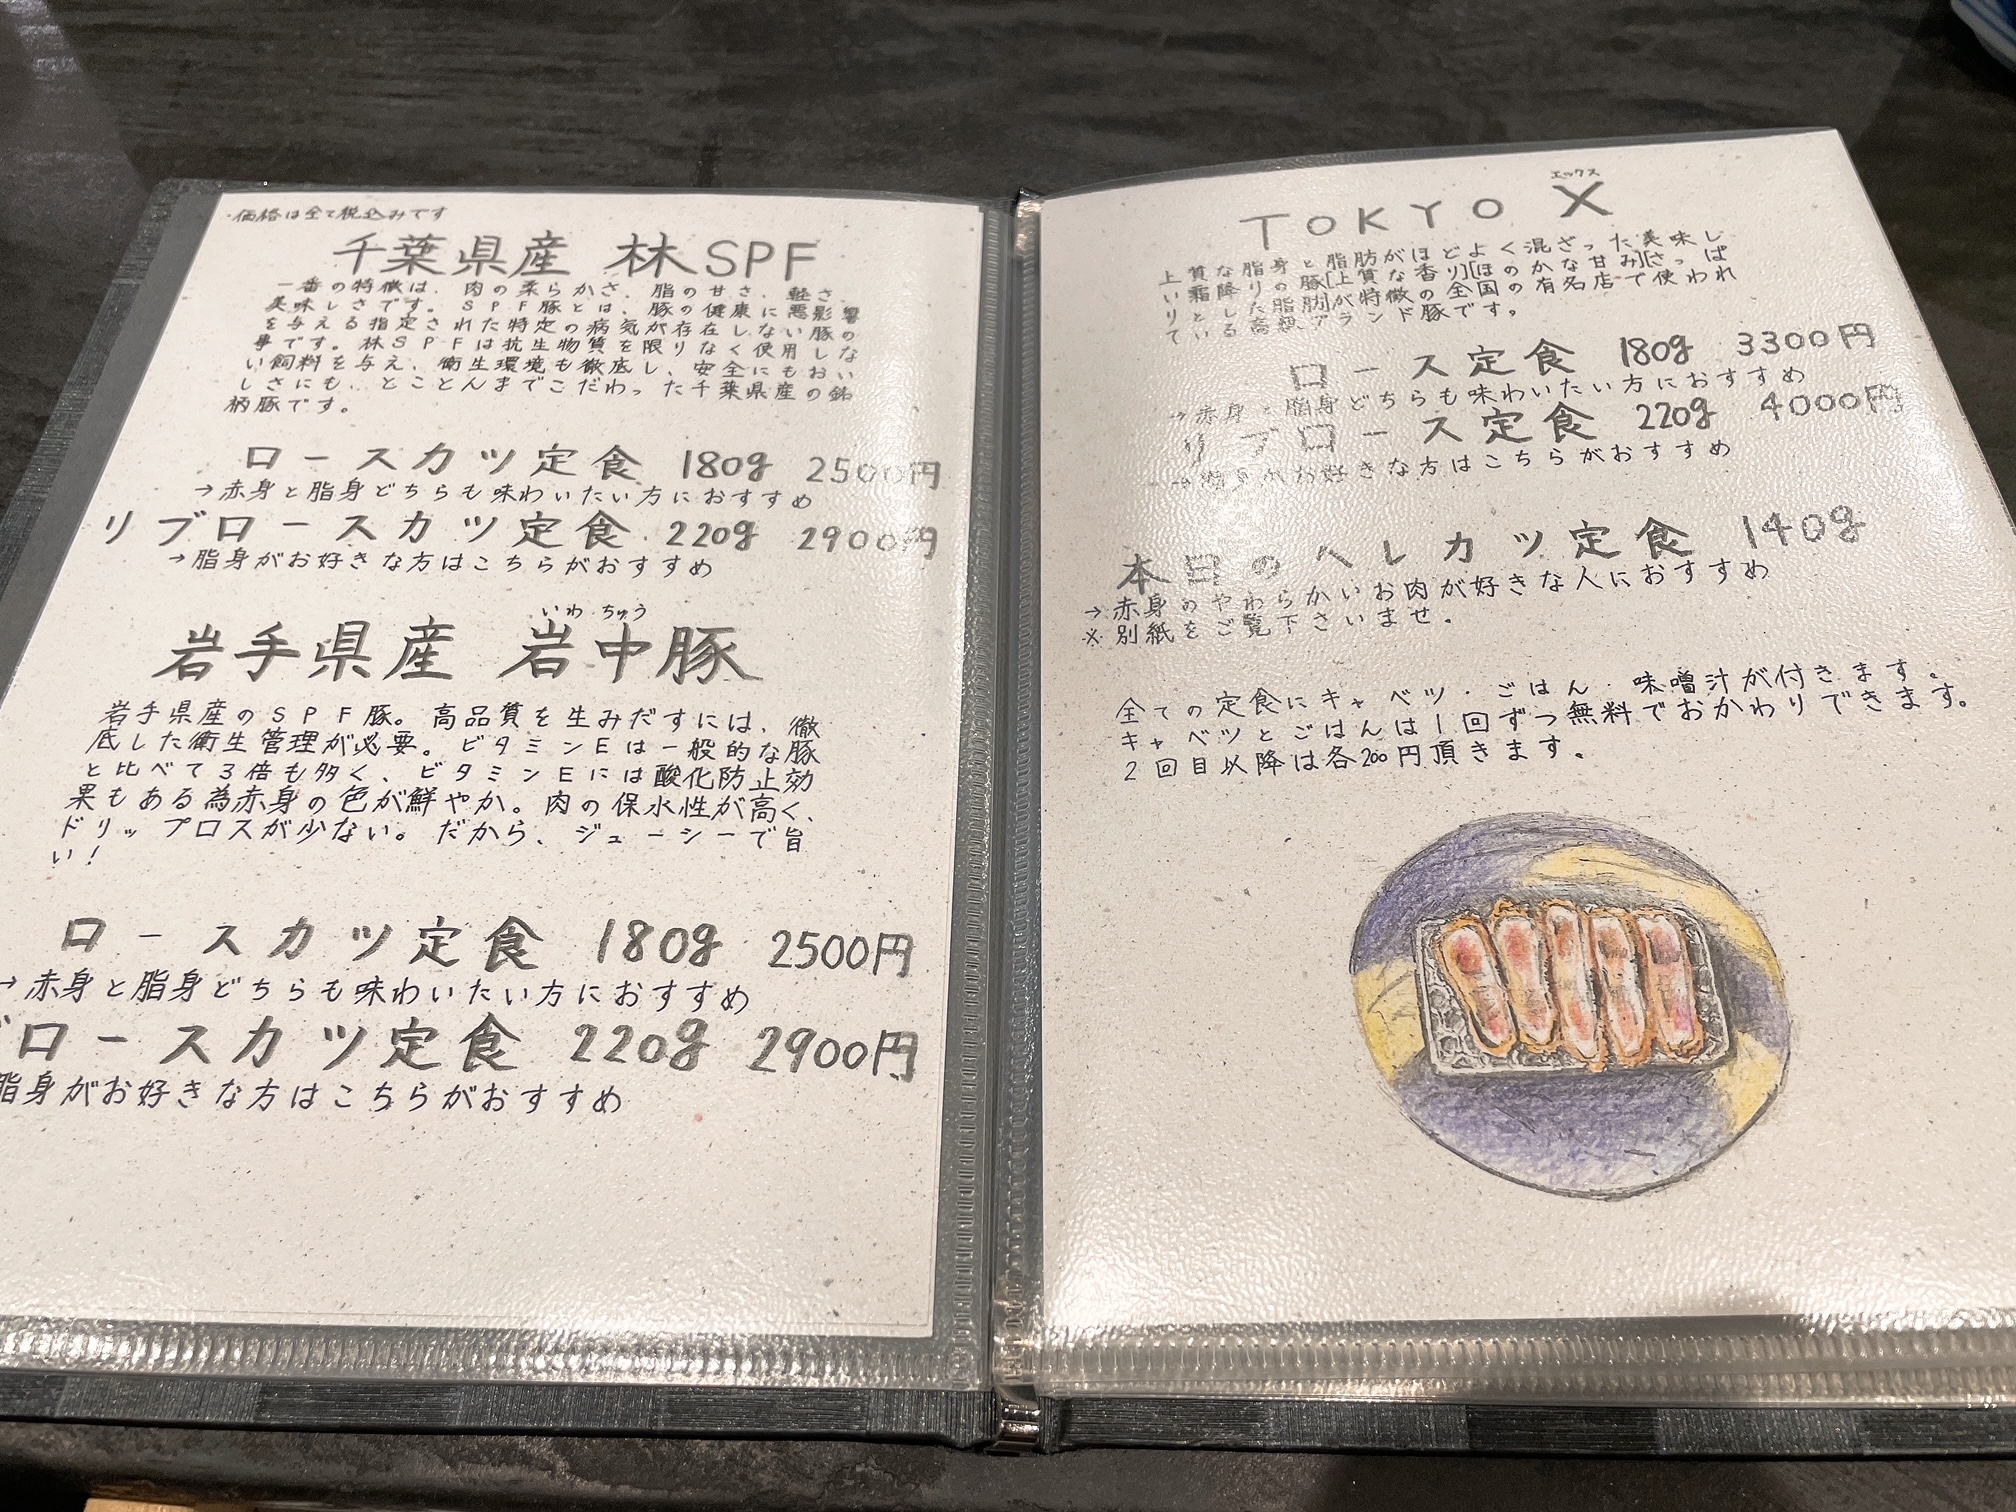 ・価格は全て税込みです
千葉県産 林SPF
一番の特徴は、肉の柔らかさ、脂の甘さ、軽さ、
美味しさです。SPF豚とは、豚の健康に悪影響
を与える指定された特定の病気が存在しない豚の
事です。林SPFは抗生物質を限りなく使用しな
い飼料を与え、衛生環境も徹底し、安全にもおい
しさにも、とことんまでこだわった千葉県産の銘
柄豚です。
ロースカツ定食 180g 2500円
→赤身と脂身どちらも味わいたい方におすすめ
リブロースカツ定食 220g 2900円
→脂身がお好きな方はこちらがおすすめ
いわちゅう
岩手県産 岩中豚
岩手県産のSPF豚。高品質を生みだすには、徹
底した衛生管理が必要。ビタミンEは一般的な豚
と比べて3倍も多く、ビタミンEには酸化防止効
果もある為赤身の色が鮮やか。肉の保水性が高く、
ドリップロスが少ない。だから、ジューシーで旨
い！
ロースカツ定食 180g 2500円
→赤身と脂身どちらも味わいたい方におすすめ
ブロースカツ定食 220g 2900円
脂身がお好きな方はこちらがおすすめ
エックス
TOKYO X
上質な脂身と脂肪がほどよく混ざった美味し
い霜降りの豚[上質な香り][ほのかな甘み][さっぱ
りとした脂肪]が特徴の全国の有名店で使われ
ている高級ブランド豚です。
ロース定食 180g 3300円
→赤身と脂身どちらも味わいたい方におすすめ
リブロース定食 220g 4000円
→脂身がお好きな方はこちらがおすすめ
本日のヘレカツ定食 140g
→赤身のやわらかいお肉が好きな人におすすめ
※別紙をご覧下さいませ。
全ての定食にキャベツ・ごはん・味噌汁が付きます。
キャベツとごはんは1回ずつ無料でおかわりできます。
2回目以降は各200円頂きます。